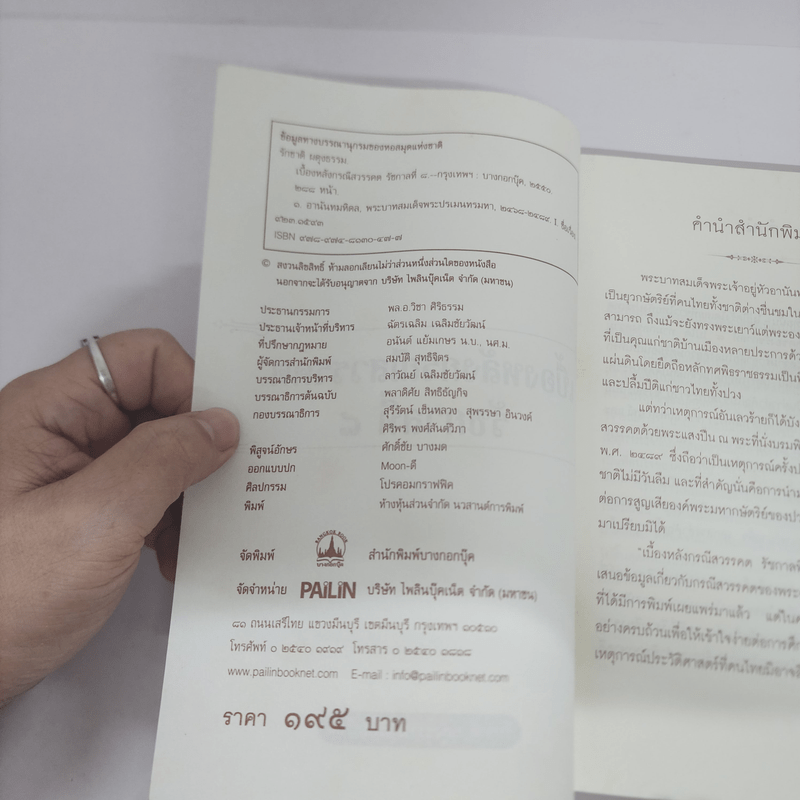 ข้อมูลทางบรรณานุกรมของหอสมุดแห่งชาติ
รักชาติ ผดุงธรรม
เบื้องหลังกรณีสวรรคต รัชกาลที่ ๘.--กรุงเทพฯ : บางกอกบุ๊ค, ๒๕๕๐.
๒๘๘ หน้า.
๑. อานันทมหิดล, พระบาทสมเด็จพระปรเมนทรมหา, ๒๔๖๘-๒๔๘๙. I. ชื่อเรื่อง.
๙๒๓.๑๕๙๓
ISBN ๙๗๘-๙๗๔-๘๑๓๐-๔๗-๗
© สงวนลิขสิทธิ์ ห้ามลอกเลียนไม่ว่าส่วนหนึ่งส่วนใดของหนังสือ
นอกจากจะได้รับอนุญาตจาก บริษัท ไพลินบุ๊คเน็ต จำกัด (มหาชน)
ประธานกรรมการ พล.อ.วิชา ศิริธรรม
ประธานเจ้าหน้าที่บริหาร ฉัตรเฉลิม เฉลิมชัยวัฒน์
ที่ปรึกษากฎหมาย อนันต์ แย้มเกษร น.บ., นศ.ม.
ผู้จัดการสำนักพิมพ์ สมบัติ สุทธิจิตร
บรรณาธิการบริหาร ลาวัณย์ เฉลิมชัยวัฒน์
บรรณาธิการต้นฉบับ พลาดิศัย สิทธิธัญกิจ
กองบรรณาธิการ สุรีรัตน์ เซ็นหลวง สุพรรษา อินวงค์
ศิริพร พงศ์สันต์วิภา
พิสูจน์อักษร ศักดิ์ชัย บางมด
ออกแบบปก Moon-ดี
ศิลปกรรม โปรคอมกราฟฟิค
พิมพ์ ห้างหุ้นส่วนจำกัด นวสาส์นการพิมพ์
จัดพิมพ์ BANGKOK BOOK บางกอกบุ๊ค สำนักพิมพ์บางกอกบุ๊ค
จัดจำหน่าย PAILIN บริษัท ไพลินบุ๊คเน็ต จำกัด (มหาชน)
๘๑ ถนนเสรีไทย แขวงมีนบุรี เขตมีนบุรี กรุงเทพฯ ๑๐๕๑๐
โทรศัพท์ ๐ ๒๕๔๐ ๑๙๑๙ โทรสาร ๐ ๒๕๔๐ ๑๘๑๘
www.pailinbooknet.com E-mail : info@pailinbooknet.com
ราคา ๑๙๕ บาท
คำนำสำนักพิม
พระบาทสมเด็จพระเจ้าอยู่หัวอานัน
เป็นยุวกษัตริย์ที่คนไทยทั้งชาติต่างชื่นชมใน
สามารถ ถึงแม้จะยังทรงพระเยาว์แต่พระอง
ที่เป็นคุณแก่ชาติบ้านเมืองหลายประการด้ว
แผ่นดินโดยยึดถือหลักทศพิธราชธรรมเป็นที่
และปลื้มปีติแก่ชาวไทยทั้งปวง
แต่ทว่าเหตุการณ์อันเลวร้ายก็ได้บัง
สวรรคตด้วยพระแสงปืน ณ พระที่นั่งบรมพิ
พ.ศ. ๒๔๘๙ ซึ่งถือว่าเป็นเหตุการณ์ครั้งป
ชาติไม่มีวันลืม และที่สำคัญนั่นคือการนำม
ต่อการสูญเสียองค์พระมหากษัตริย์ของปร
มาเปรียบมิได้
"เบื้องหลังกรณีสวรรคต รัชกาลที่
เสนอข้อมูลเกี่ยวกับกรณีสวรรคตของพระ
ที่ได้มีการพิมพ์เผยแพร่มาแล้ว แต่ในค
อย่างครบถ้วนเพื่อให้เข้าใจง่ายต่อการศึก
เหตุการณ์ประวัติศาสตร์ที่คนไทยมิอาจลื